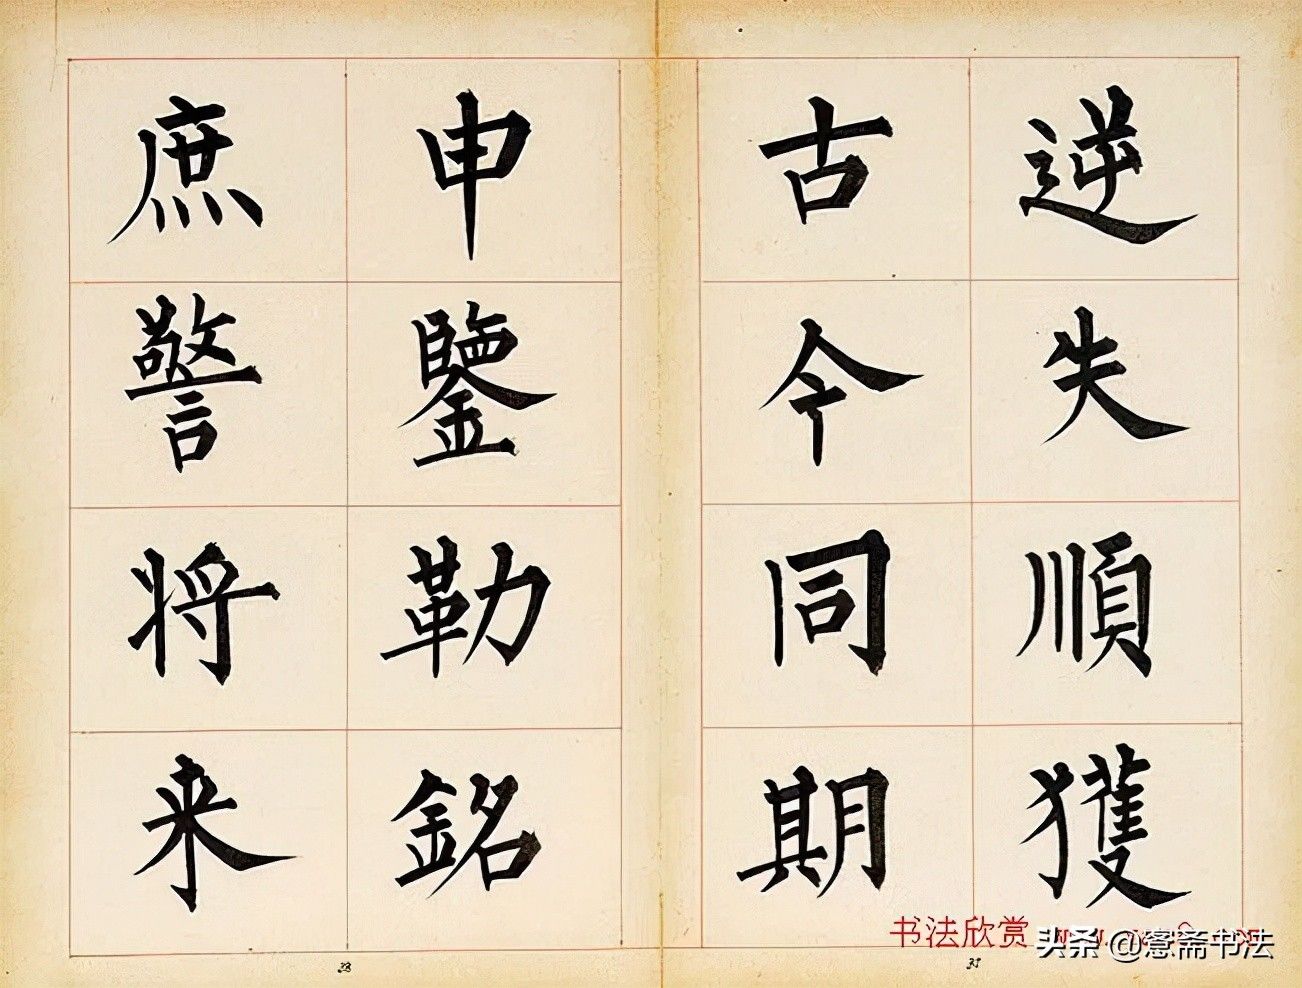 逆失順獲
古今同期
申鑒勒銘
庶警将来
书法欣赏
头条 @愙斋书法